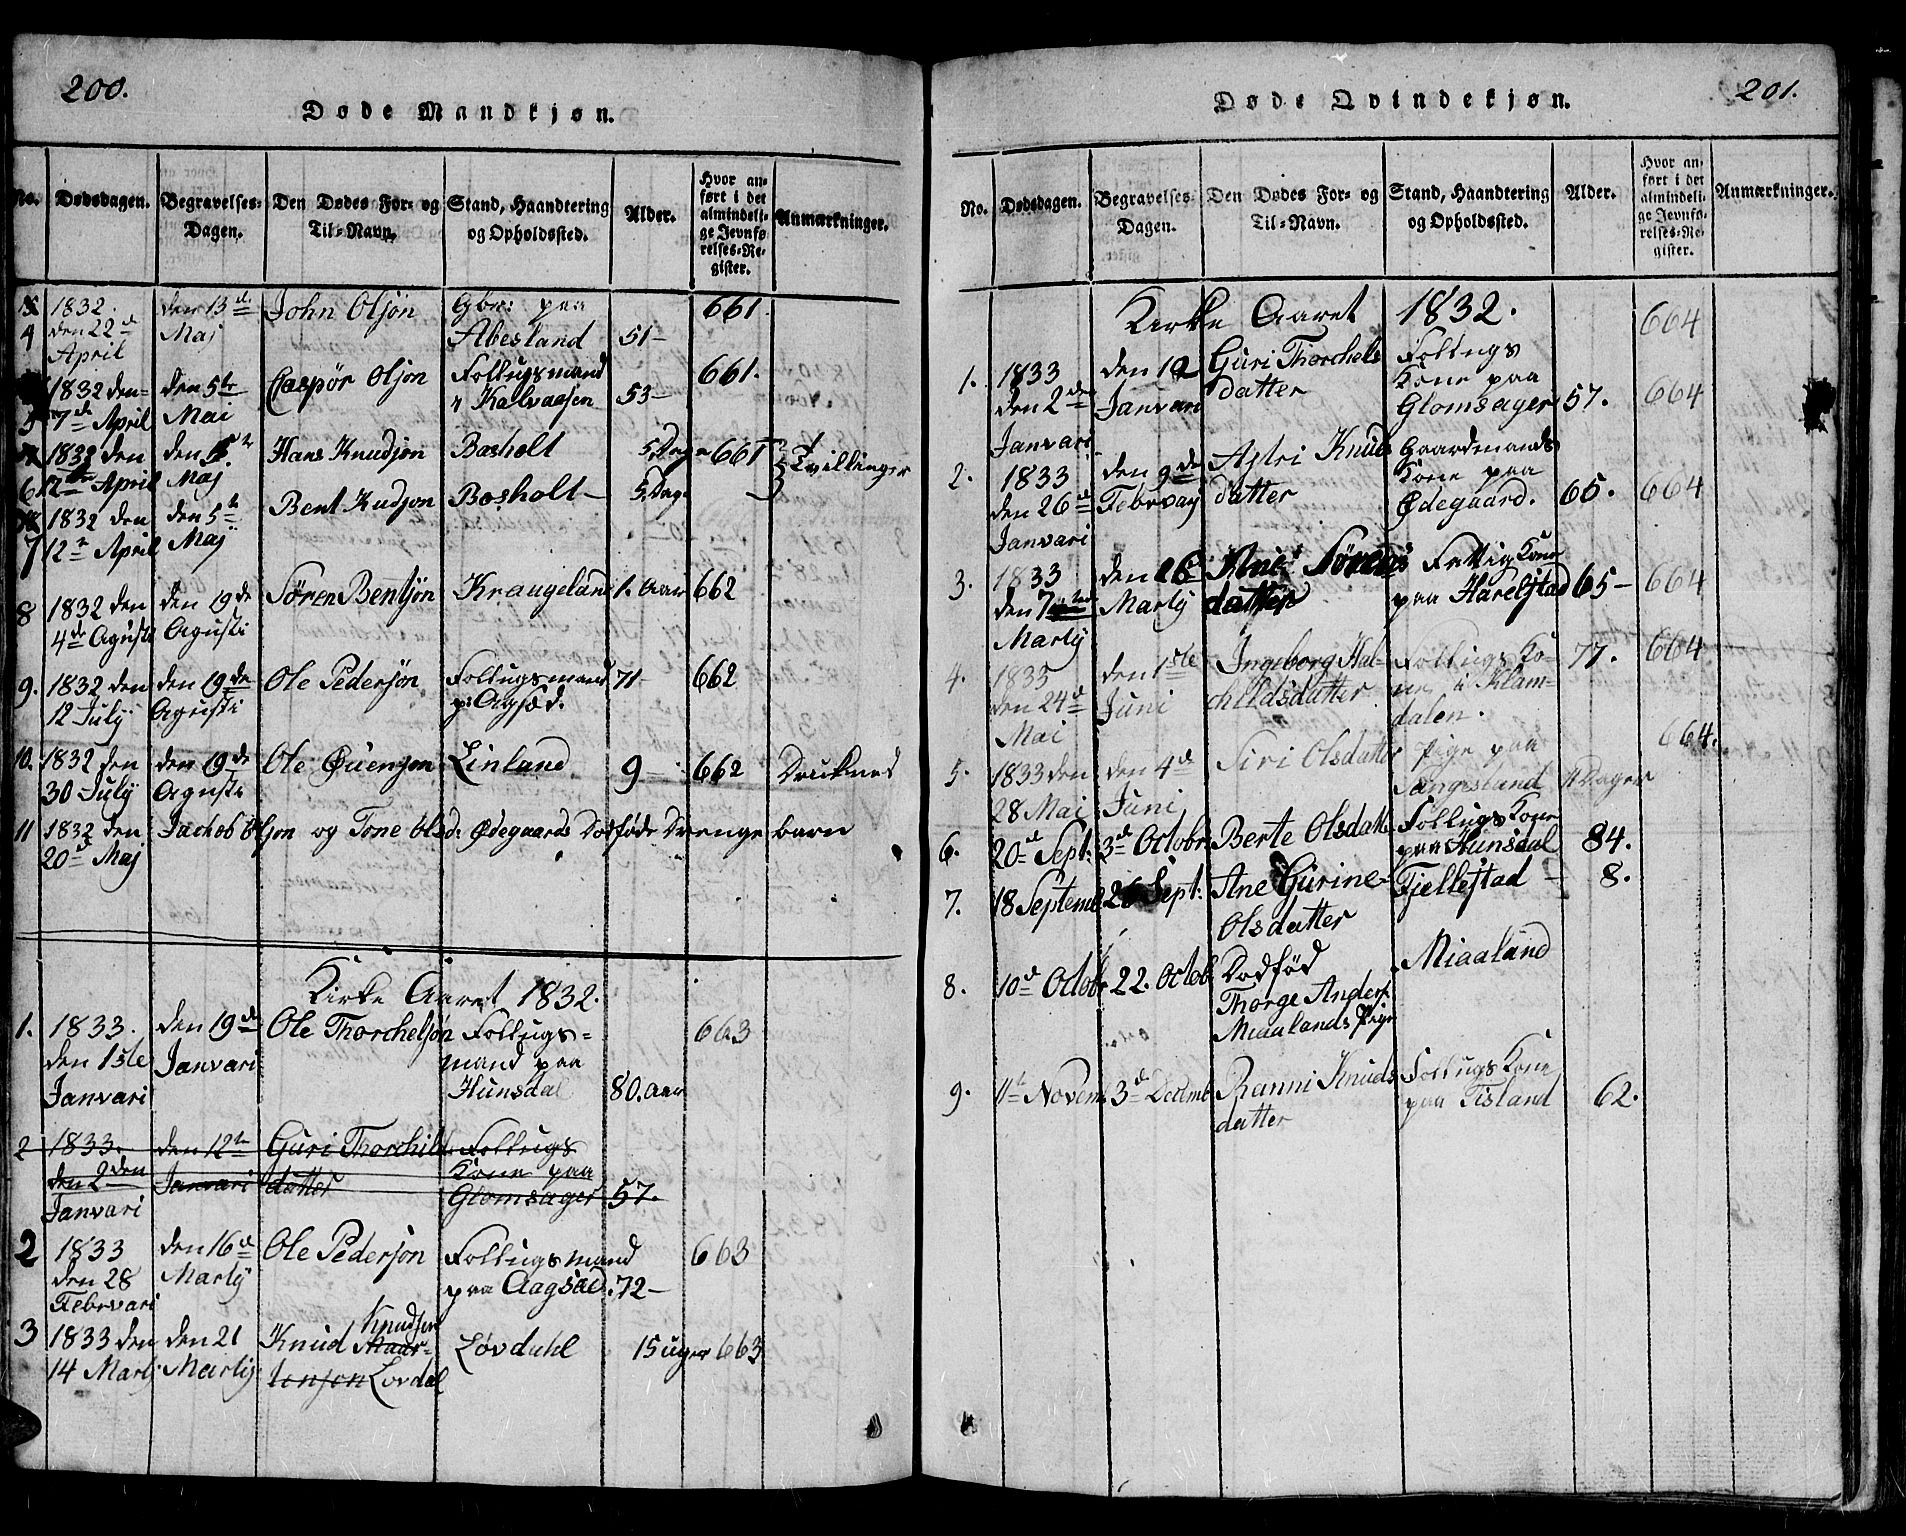 200.
Døde Mandkjøn.
No. Dødsdagen. Begravelses-Dagen. Den Dødes For- og Til-Navn. Stand, Haandtering og Opholdssted. Alder. Hvor anført i det almindelige Jevnførelses-Register. Anmærkninger.
4 1832. den 22d April den 13d Maj John Olsjon paa Abesland 51- 661.
5 1832 den 7d April den 5te Mai Caspør Olson Follugsmand Kalvaasen 53- 661.
6 1832 den 12te April den 5te Maj Hans Knudsjon Bosholt 5 Dage 661 Tvillinger
7 1832 den 12te April den 5te Maj Bent Kudsjon Bosholt- 5 Dage
8 1832 den 4de Agusti den 19de Agusti Søren Bentsjøn Kraugeland 1. Aar 662
9. 1832 den 12 July den 19de Agusti Ole Pedersjøn Follugsmand p: Agsæd. 71- 662
10. 1832 den 30 July den 19de Agusti Ole Øuensjon Linland 9- 662 Drukned
11 1832 den 20d Maj Jachob Olsjon og Tone Olsd: Ødegaards Dødføde Drengebarn
Kirke Aaret 1832.
1. 1833. den 1ste Janvari den 19de Janvari Ole Thorchelsjøn Follugsmand paa Hunsdal 80. Aar 663
2 1833. den 2den Janvari den 12te Janvari Guri Thorchilddatter Follugs Kone paa Glomsager 57.
2 1833 den 28 Febrvari den 16d Martij Ole Pedersjon Follugsmand paa Aagsæd. 72- 663
3 1833 den 14 Martij den 21 Martij Knud Knudsen Maartensjen Lovdal Løvdahl 15 uger 663
201.
Døde Qvindekjøn.
No. Dødsdagen. Begravelses-Dagen. Den Dødes For- og Til-Navn. Stand, Haandtering og Opholdssted. Alder. Hvor anført i det almindelige Jevnførelses-Register. Anmærkninger.
Kirke Aaret 1832. 664
1. 1833 den 2den Janvari den 12 Janvari Guri Thorchelsdatter Follugs Kone paa Glomsager 57. 664
2. 1833 den 26d Janvari den 9de Febrvary Astri Knudsdatter Gaardmands Kone paa Ødegaard. 65. 664
3. 1833 den 7 Martij den 16 Martij Ane Sørensdatter Fattig Kone paa Harelstad 65- 664
4. 1833 den 24d Mai den 1ste Juni Ingeborg Halchildsdatter Follugs Kone i Klamdalen. 77. 664
5. 1833 den 28 Mai den 4de Juni Siri Olsdatter Pige paa Langesland 11 Dager 664.
6. 20d Sept: 3d Octobr Berte Olsdatter Follugs Kone paa Hunsdal 84.
7. 18 Septemb 26 Sept: Ane Gurine Olsdatter Fjellestad- 8.
8. 10d Octobr 22. Octob Dødfød Thorge Anders. Miaalands Pige Miaaland
9. 11te Novemb 3d Decemb Ranni Knudsdatter Follugs Kone paa Tisland 62.